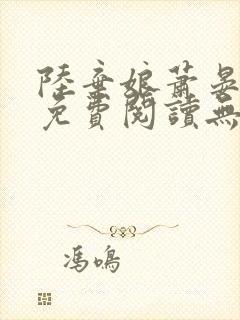 陸棄娘蕭晏
免費閱讀無
馮鳴